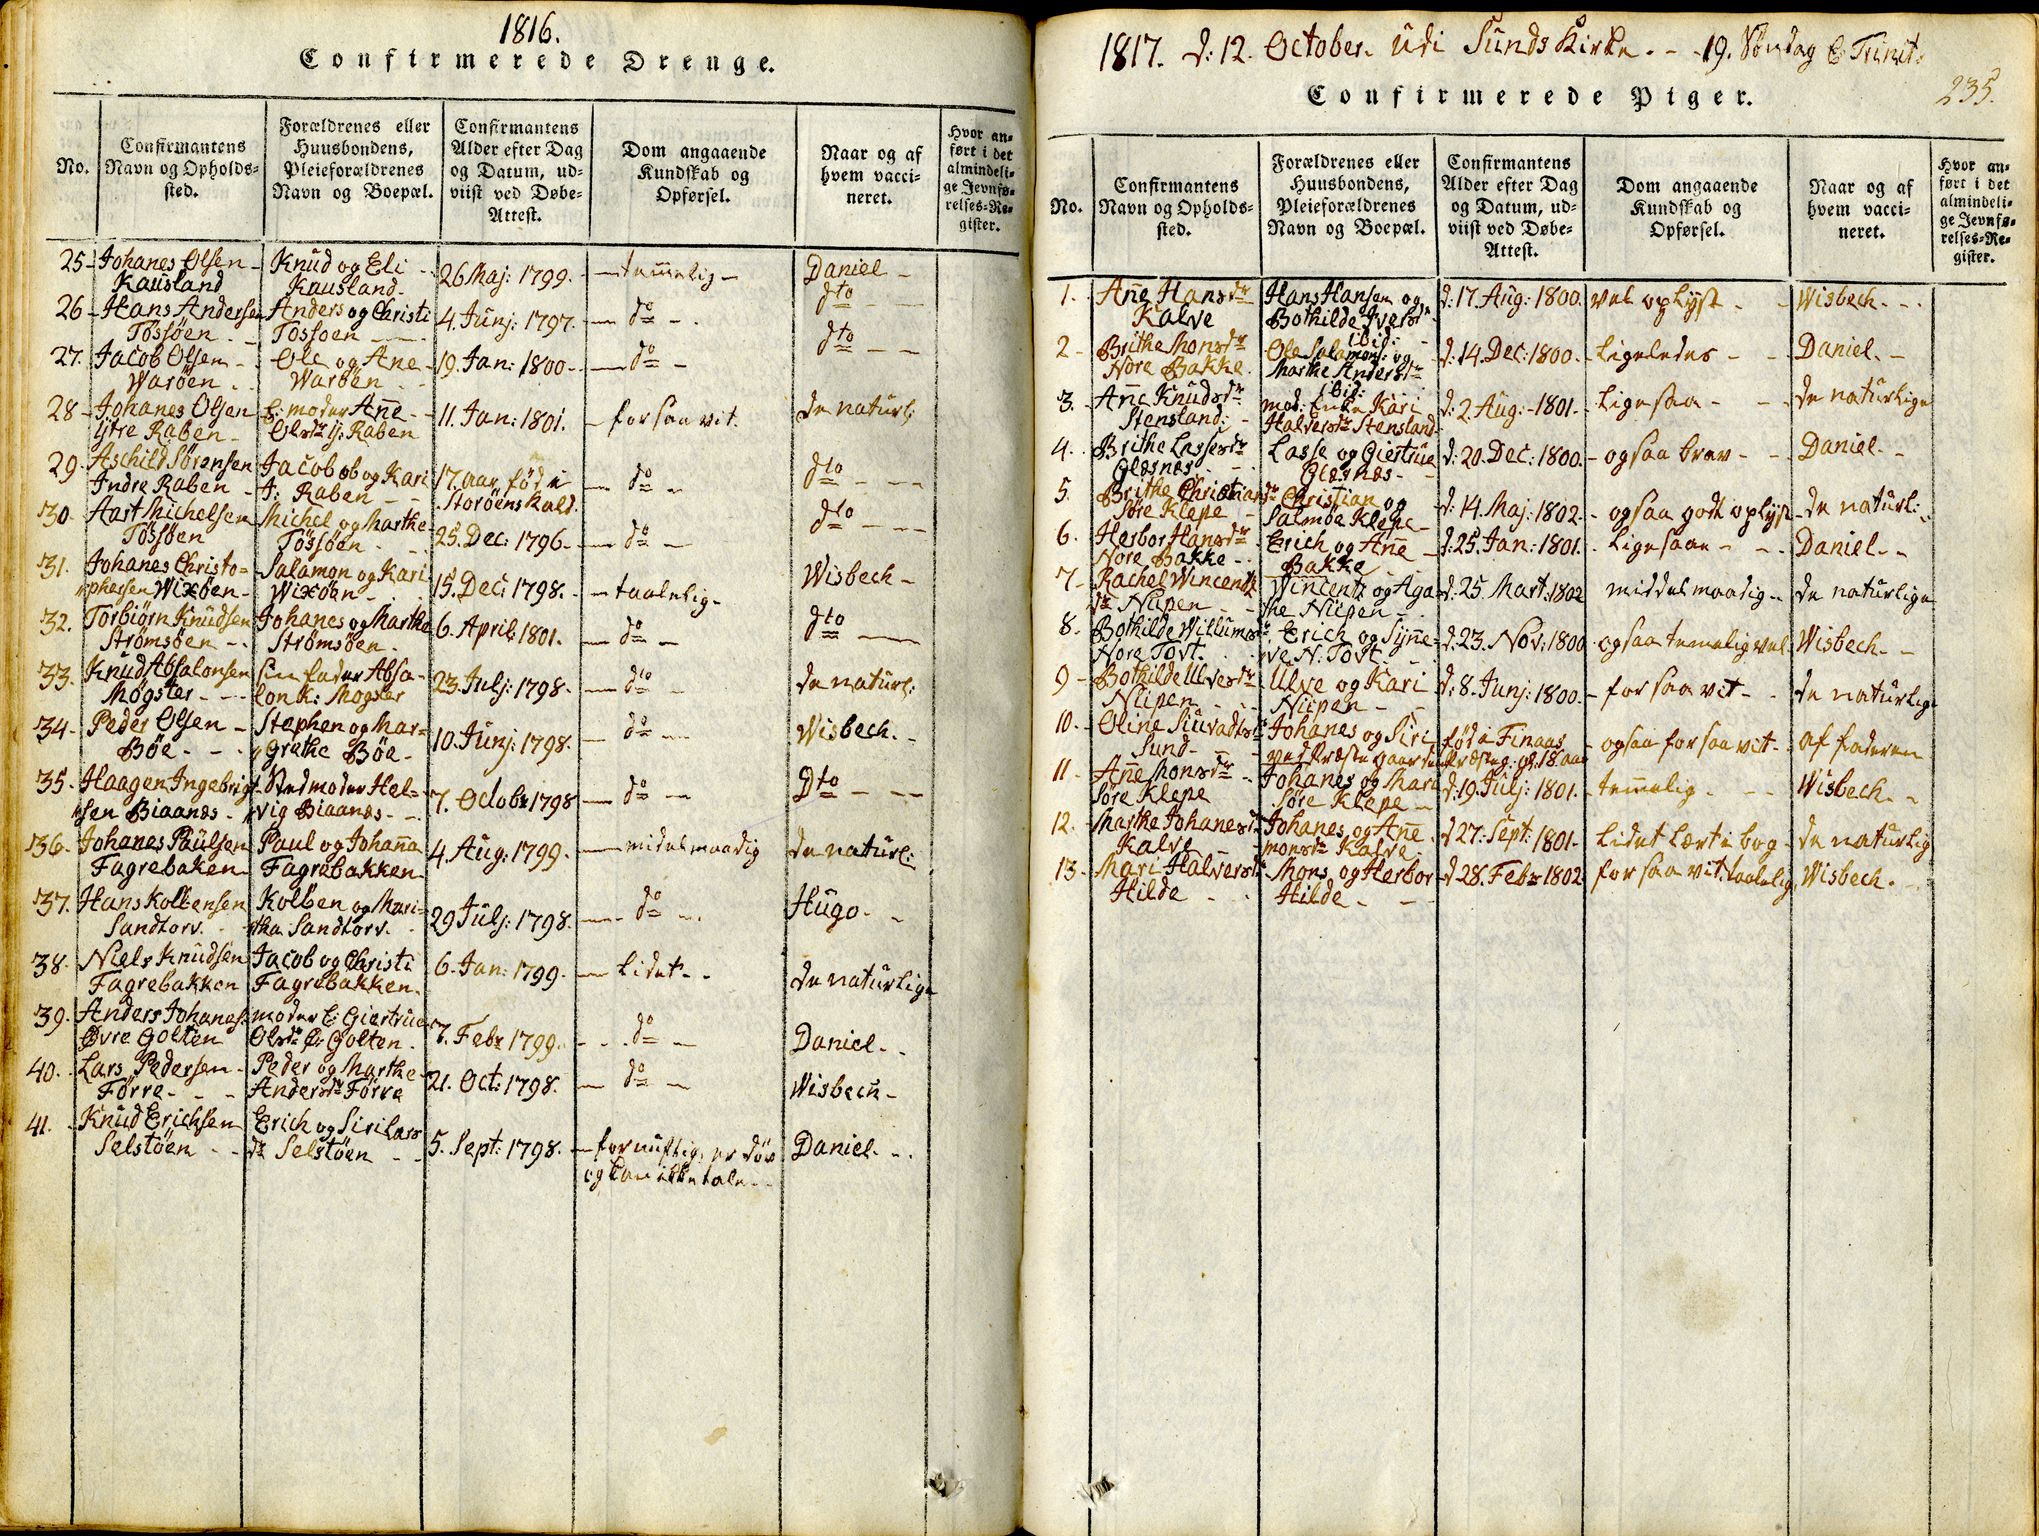 1816.
Confirmerede Drenge.
No.
Confirmantens
Navn og Opholds-
sted.
Forældrenes eller
Huusbondens,
Pleieforældrenes
Navn og Boepæl.
Confirmantens
Alder efter Dag
og Datum, ud-
viist ved Døbe-
Attest.
Dom angaaende
Kundskab og
Opførsel.
Naar og af
hvem vacci-
neret.
Hvor an-
ført i det
almindeli-
ge Jevnfø-
relses-Re-
gister.
25 - Johanes Olsen - Knud og Eli - 26 Maj: 1799. - tem̄elig - Daniel -
Kausland Kausland -
26 - Hans Andersen Anders og Christi 4. Junj: 1797. - do - dto
Tössöen - Tössoen -
27. Jacob Olsen - Ole og Ane - 19. Jan: 1800 - - do - dto
Waröen - Waröen -
28 - Johanes Olsen E: moder An̄e - 11. Jan: 1801. - for saa vit. de naturl:
ijtre Raben - Olsdr ij: Raben
29. Aschild Sörensen Jacob og Kari 17 aar, föd i - do - dto
Indre Raben - J: Raben - Storöens Kald.
30. Aart Michelsen Michel og Marthe 25. Dec: 1796 - - do - dto
Tössöen Tössöen -
31. Johanes Christo= Salamon og Kari 15. Dec: 1798. - taalelig - Wisbech -
phersen Wixöen - Wixöen -
32. Torbiörn Knudsen Johanes og Marthe 6. April 1801. - do - dto
Strömsöen - Strömsöen.
33. Knud Absalonsen sin fader Absa- 23. Julj: 1798 - - do - de naturl:
Mögster - lon K: Mogster
34. Peder Olsen - Stephen og Mar= 10. Junj: 1798. - do - Wisbech. -
Böe - grethe Böe -
35. Haagen Ingebrigt- Stedmoder Hel= 7. Octobr 1798 - do - Dto
sen Biaanæs - vig Biaanæs -
36. Johanes Paulsen Paul og Johan̄a 4. Aug: 1799. - midelmaadig de naturl:
Fagrebaken Fagrebakken
37. Hans Kolbensen Kolben og Mari= 29 Julj: 1798. - do - Hugo. -
Sandtorv. - tha Sandtorv. -
38. Niels Knudsen Jacob og Christi 6. Jan: 1799. - Lidet - de naturlige
Fagrebakken Fagrebakken.
39. Anders Johanes: moder E: Giertrue 7. Febr 1799. - do - Daniel. -
Øvre Golten Olsdr Ø: Golten.
40. Lars Pedersen - Peder og Marthe 21. Oct: 1798. - do - Wisbech -
Förre - Andersdr Förre
41. Knud Erichsen Erich og Siri Lars 5. Sept: 1798. - fornuftig, er döv Daniel. -
Selstöen - dr Selstöen - og kan ikke tale -
1817. d: 12. October. udi Sunds Kirke. - 19. Söndag E: Trinit:
235.
Confirmerede Piger.
No.
Confirmantens
Navn og Opholds-
sted.
Forældrenes eller
Huusbondens,
Pleieforældrenes
Navn og Boepæl.
Confirmantens
Alder efter Dag
og Datum, ud-
viist ved Døbe-
Attest.
Dom angaaende
Kundskab og
Opførsel.
Naar og af
hvem vacci-
neret.
Hvor an-
ført i det
almindeli-
ge Jevnfø-
relses-Re-
gister.
1. An̄e Hansdr Hans Hansen og d: 17. Aug: 1800. vel oplyst - Wisbech -
Kalve Bothilde Iversdr
ibid:
2 - Brithe Monsdr Ole Salamons: og d: 14. Dec: 1800. - Ligeledes - Daniel. -
Nore Bakke. Marthe Andersdr
ibid:
3. An̄e Knudsdr mod: Enke Kari d: 2 Aug: 1801. - Ligesaa - de naturlige
Stensland: - Halversdr Stensland
4. Brithe Lassesdr Lasse og Giertrue d: 20. Dec: 1800. - ogsaa brav - Daniel. -
Glæsnæs - Glæsnæs -
5. Brithe Christiansdr Christian og d: 14. Maj: 1802. - ogsaa godt oplyst - de naturl:
Söre Klepe - Salmöe Klepe -
6. Herbor Hansdr Erich og An̄e d: 25. Jan: 1801. - Ligesaa - Daniel. -
Nore Bakke - Bakke
7 - Rachel Wincentz Wincentz og Aga d: 25. Mart: 1802 middelmaadig - de naturlige
dr Nipen - the Nipen -
8. Bothilde Willumsdr Erich og Syn̄e= d: 23. Nov: 1800 ogsaa temelig vel Wisbech. -
Nore Tovt. - ve N. Tovt. -
9 - Bothilde Ulvesdr Ulve og Kari d: 8. Junj: 1800. - for saa vit - de naturlige
Nipen - Nipen -
10. Oline Siuradsdr Johanes og Siri föd i Finaas - ogsaa for saa vit - af faderen
Sund - ved Præstegaarden Præsteg: gl: 18. aar
11 - An̄e Monsdr Johanes og Mari d: 19. Julj: 1801. - tem̄elig - Wisbech. -
Söre Klepe Söre Klepe -
12. Marthe Johanesdr Johanes og An̄e d 27. Sept: 1801. Lidet Lært i bog - de naturlig
Kalve Monsdr Kalve.
13 - Mari Halversdr Mons og Herbor d 28. Febr 1802 for saa vit, taalelig, Wisbech.
Hilde - Hilde -